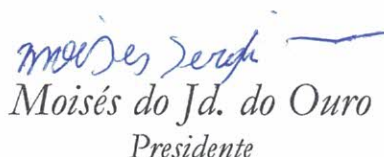 Moises Sergi
Moisés do Jd. do Ouro
Presidente